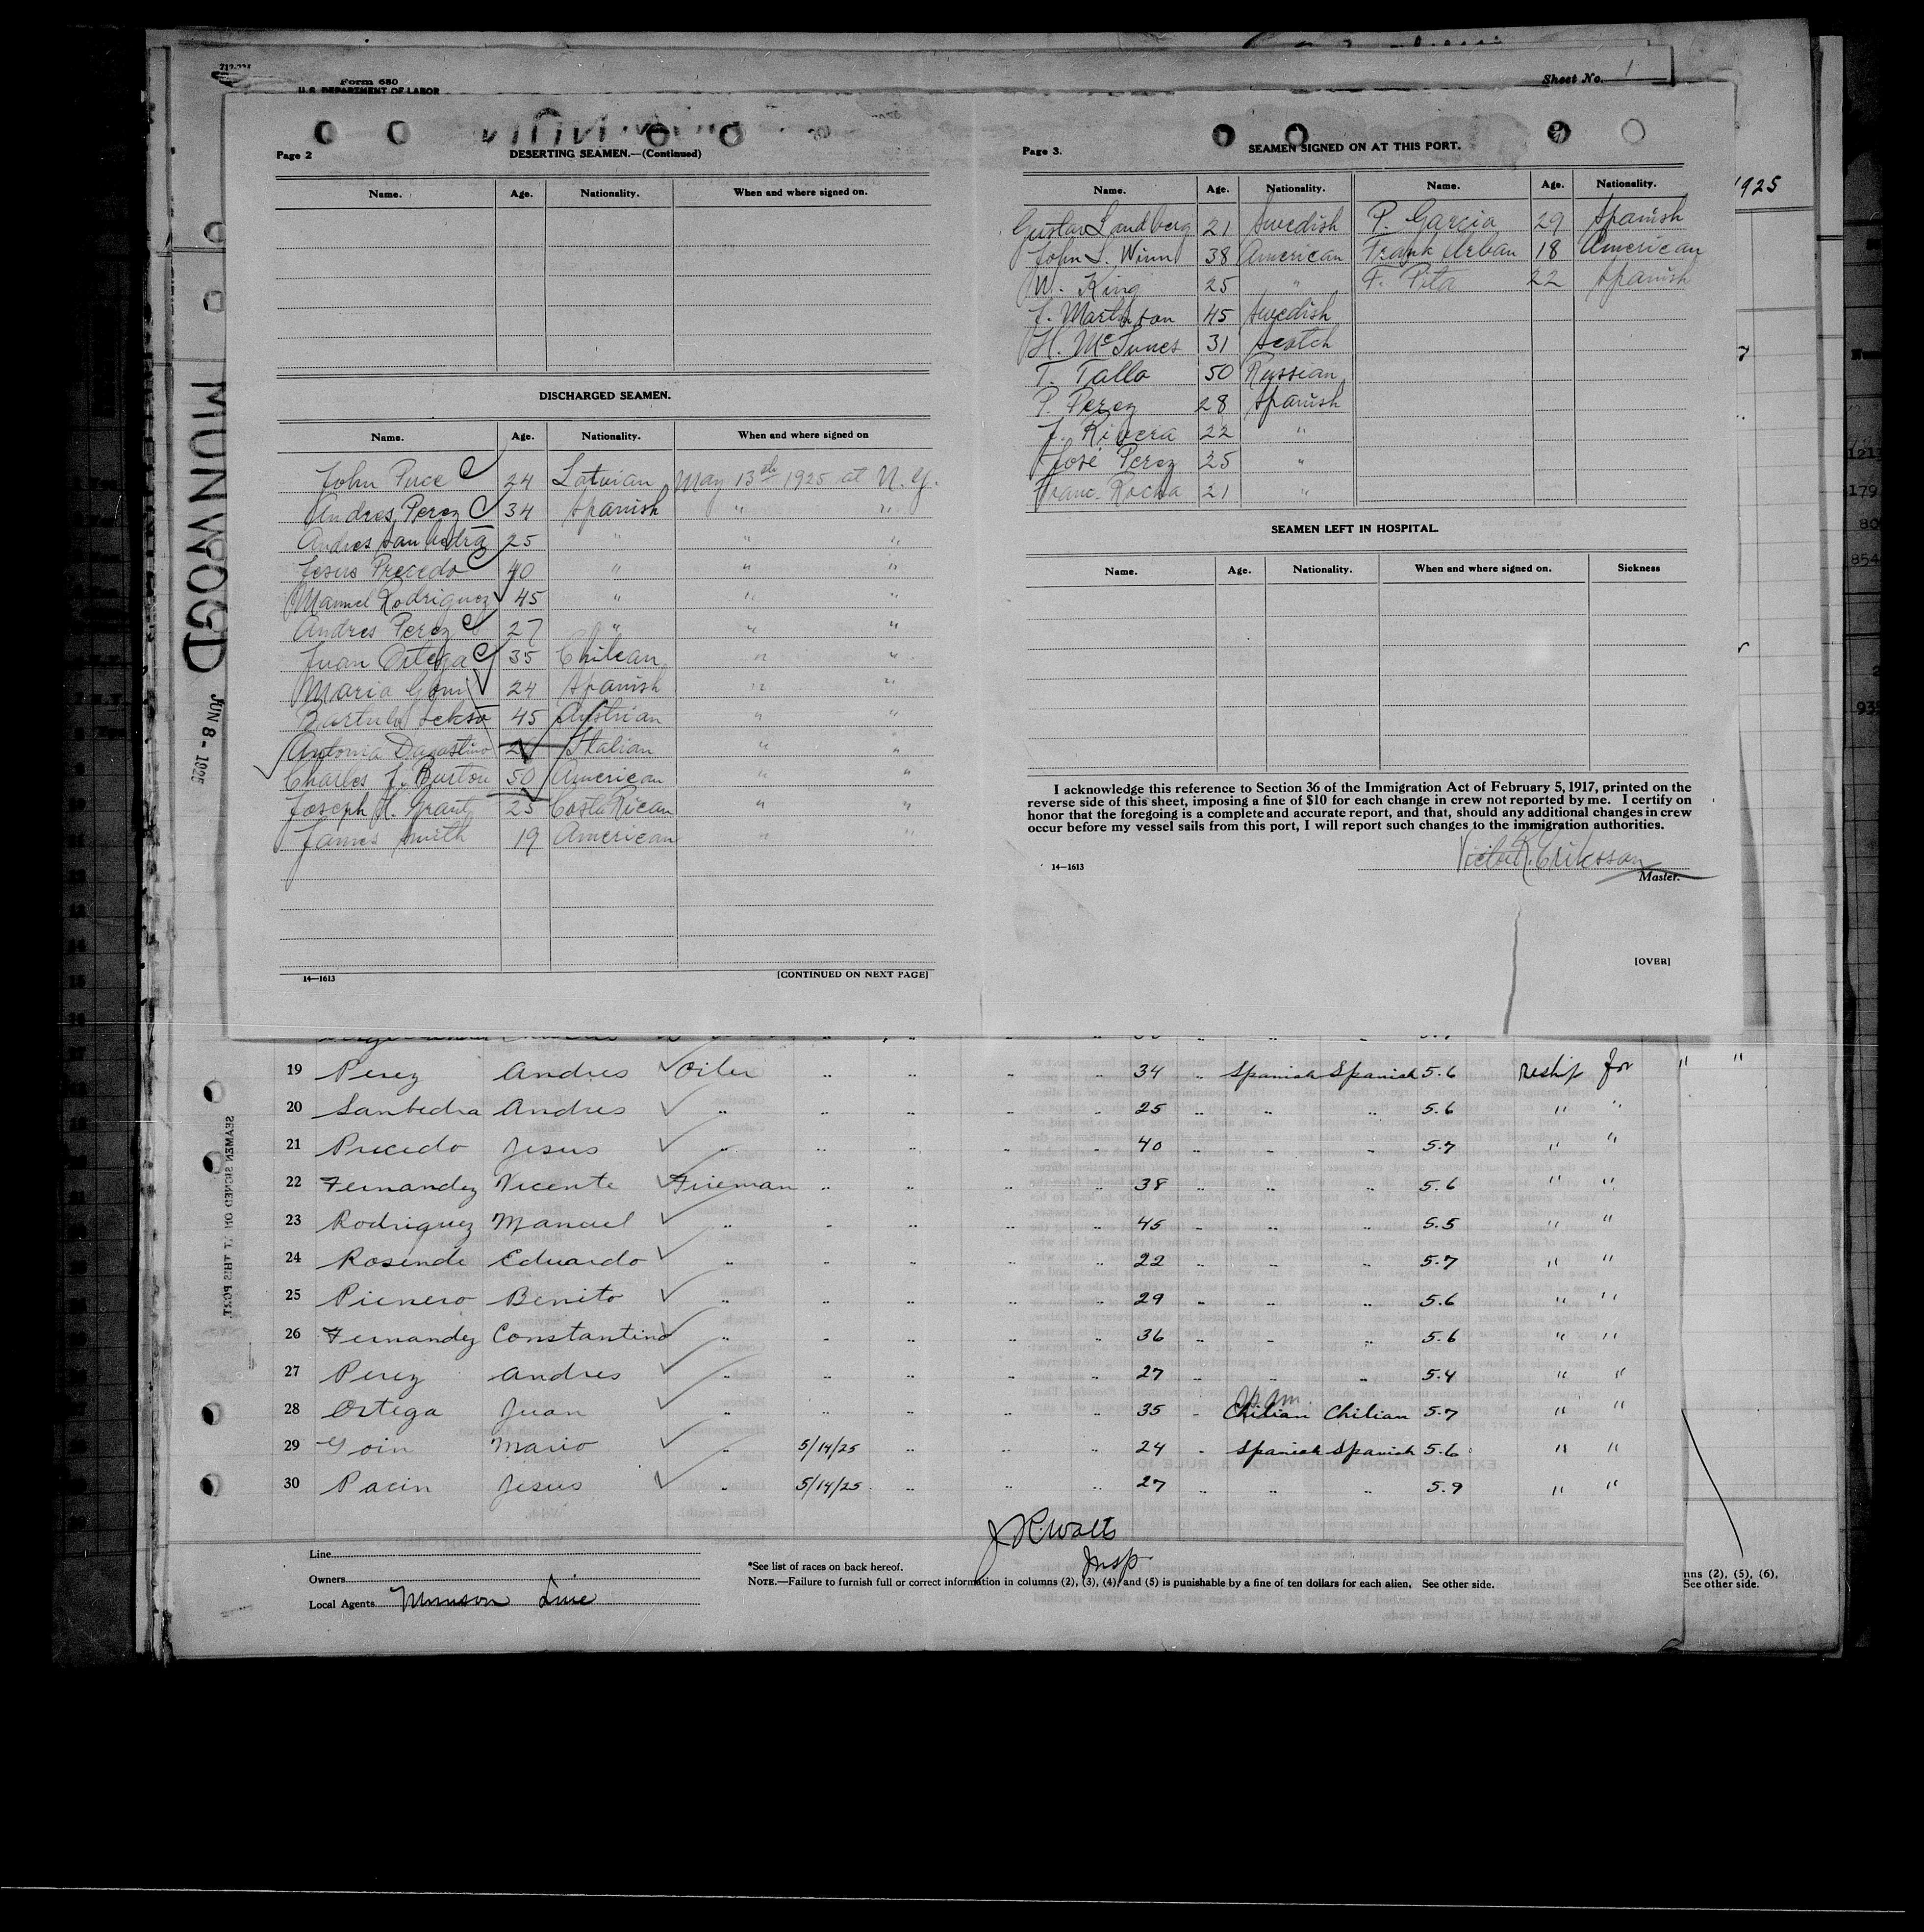 Form 680
U.S. DEPARTMENT OF LABOR
Sheet No. 1
1925
MUNWOOD
JUN 8 - 1925
Page 2
DESERTING SEAMEN.—(Continued)
Name. Age. Nationality. When and where signed on.
DISCHARGED SEAMEN.
Name. Age. Nationality. When and where signed on
John Puce C 24 Latvian May 13th 1925 at N.Y.
Andres Perez C 34 Spanish " "
Andres Sanbedra 25 " " "
Jesus Precedo C 40 " " "
Manuel Rodriguez 45 " " "
Andres Perez C 27 " " "
Juan Ortega C 35 Chilean " "
Maria Goni 24 Spanish " "
45 Austrian " "
Antonia Dagostino Italian " "
Charles J. Burton 50 American " "
Joseph H. Grant 25 Costa Rican " "
James Smith 19 American " "
14—1613
[CONTINUED ON NEXT PAGE]
Page 3.
SEAMEN SIGNED ON AT THIS PORT.
Name. Age. Nationality. Name. Age. Nationality.
Gustav Landberg 21 Swedish P. Garcia 29 Spanish
John L. Winn 38 American Frank Urban 18 American
W. King 25 " F. Pita 22 Spanish
J. Martinson 45 Swedish
H. McInnes 31 Scotch
T. Tallo 50 Russian
P. Perez 28 Spanish
J. Rivera 22 "
José Perez 25 "
Franc. Rocha 21 "
SEAMEN LEFT IN HOSPITAL.
Name. Age. Nationality. When and where signed on. Sickness
I acknowledge this reference to Section 36 of the Immigration Act of February 5, 1917, printed on the
reverse side of this sheet, imposing a fine of $10 for each change in crew not reported by me. I certify on
honor that the foregoing is a complete and accurate report, and that, should any additional changes in crew
occur before my vessel sails from this port, I will report such changes to the immigration authorities.
Victor R. Eriksson
14—1613
Master.
[OVER]
19 Perez Andres Oiler " " " " 34 " Spanish Spanish 5.6 reship for " "
20 Sanbedra Andres " " " " " 25 " " " 5.6 " "
21 Precedo Jesus " " " " " 40 " " " 5.7 " "
22 Fernandez Vicente Fireman " " " " 38 " " " 5.6 " "
23 Rodriguez Manuel " " " " " 45 " " " 5.5 " "
24 Rosende Eduardo " " " " " 22 " " " 5.7 " "
25 Pienero Benito " " " " " 29 " " " 5.6 " "
26 Fernandez Constantino " " " " " 36 " " " 5.6 " "
27 Perez Andres " " " " " 27 " " " 5.4 " "
28 Ortega Juan " " " " 35 " Chilian Chilian 5.7 " "
29 Goin Mario " 5/14/25 " " " 24 " Spanish Spanish 5.6 " "
30 Pacin Jesus " 5/14/25 " " " 27 " " " 5.9 " "
J R Walts
Insp
Line
Owners
Local Agents Munson Line
*See list of races on back hereof.
NOTE.—Failure to furnish full or correct information in columns (2), (3), (4), and (5) is punishable by a fine of ten dollars for each alien. See other side.
mns (2), (5), (6),
See other side.